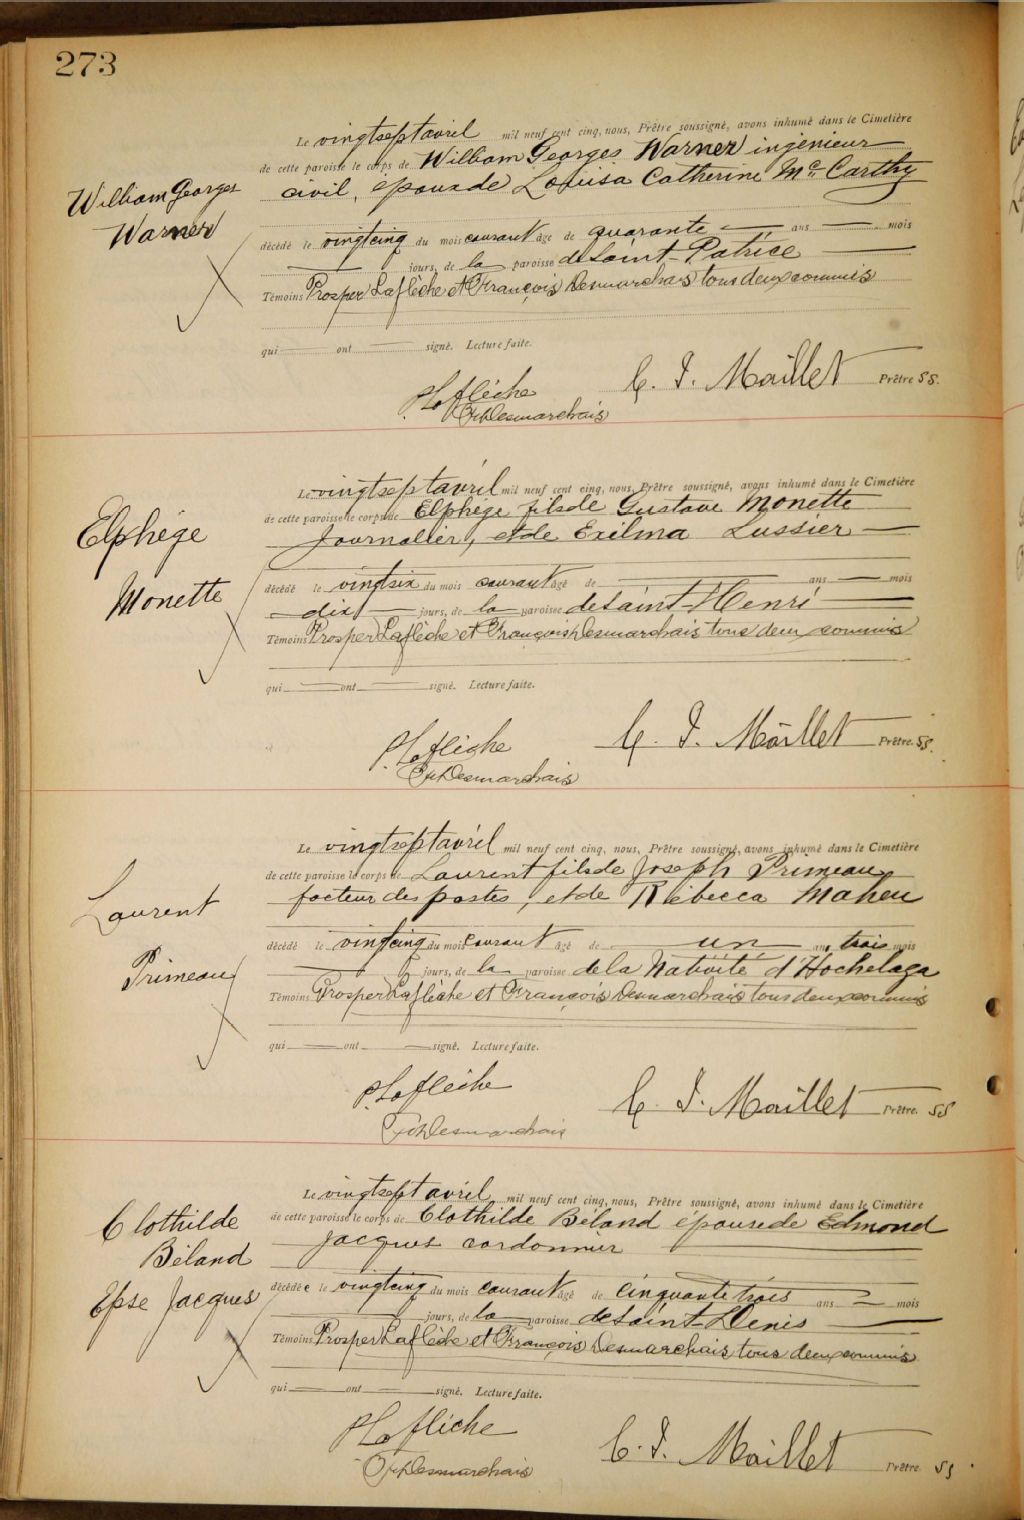 273
Le vingtsept avril mil neuf cent cinq, nous, Prêtre soussigné, avons inhumé dans le Cimetière
de cette paroisse le corps de William Georges Warner ingénieur
civil, époux de Louisa Catherine Mc Carthy
William Georges
Warner
décédé le vingtcinq du mois courant âgé de quarante ans mois
jours, de la paroisse de Saint-Patrice
Témoins Prosper Laflèche et François Desmarchais tous deux commis
qui ont signé. Lecture faite.
C. I. Maillet Prêtre SS.
P. Laflèche
Frs Desmarchais
Le vingtsept avril mil neuf cent cinq, nous, Prêtre soussigné, avons inhumé dans le Cimetière
de cette paroisse le corps de Elphège fils de Gustave Monette
Journalier, et de Exilma Lussier
Elphège
Monette
décédé le vingtsix du mois courant âgé de ans mois
dix jours, de la paroisse de Saint-Henri
Témoins Prosper Laflèche et François Desmarchais tous deux commis
qui ont signé. Lecture faite.
C. I. Maillet Prêtre. SS.
P. Laflèche
Frs Desmarchais
Le vingtsept avril mil neuf cent cinq, nous, Prêtre soussigné, avons inhumé dans le Cimetière
de cette paroisse le corps de Laurent fils de Joseph Primeau
facteur des postes, et de Rébecca Maheu
Laurent
Primeau
décédé le vingtcinq du mois courant âgé de un an, trois mois
jours, de la paroisse de la Nativité d'Hochelaga
Témoins Prosper Laflèche et François Desmarchais tous deux commis
qui ont signé. Lecture faite.
C. I. Maillet Prêtre. SS
P. Laflèche
Frs Desmarchais
Le vingtsept avril mil neuf cent cinq, nous, Prêtre soussigné, avons inhumé dans le Cimetière
de cette paroisse le corps de Clothilde Béland épouse de Edmond
Jacques cordonnier
Clothilde
Béland
Epse Jacques
décédée le vingtcinq du mois courant âgé de cinquante trois ans mois
jours, de la paroisse de Saint-Denis
Témoins Prosper Laflèche et François Desmarchais tous deux commis
qui ont signé. Lecture faite.
C. I. Maillet Prêtre. SS
P. Laflèche
Frs Desmarchais